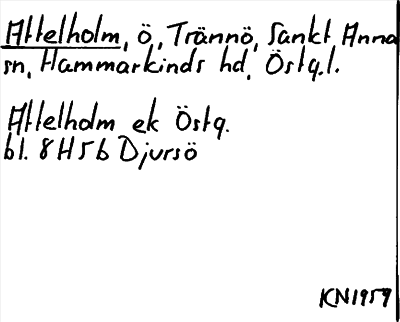 Attelholm, ö, Trännö, Sankt Anna
sn, Hammarkinds hd, Östg.l.
Attelholm ek Östg.
bl. 8H5b Djursö
KN1959